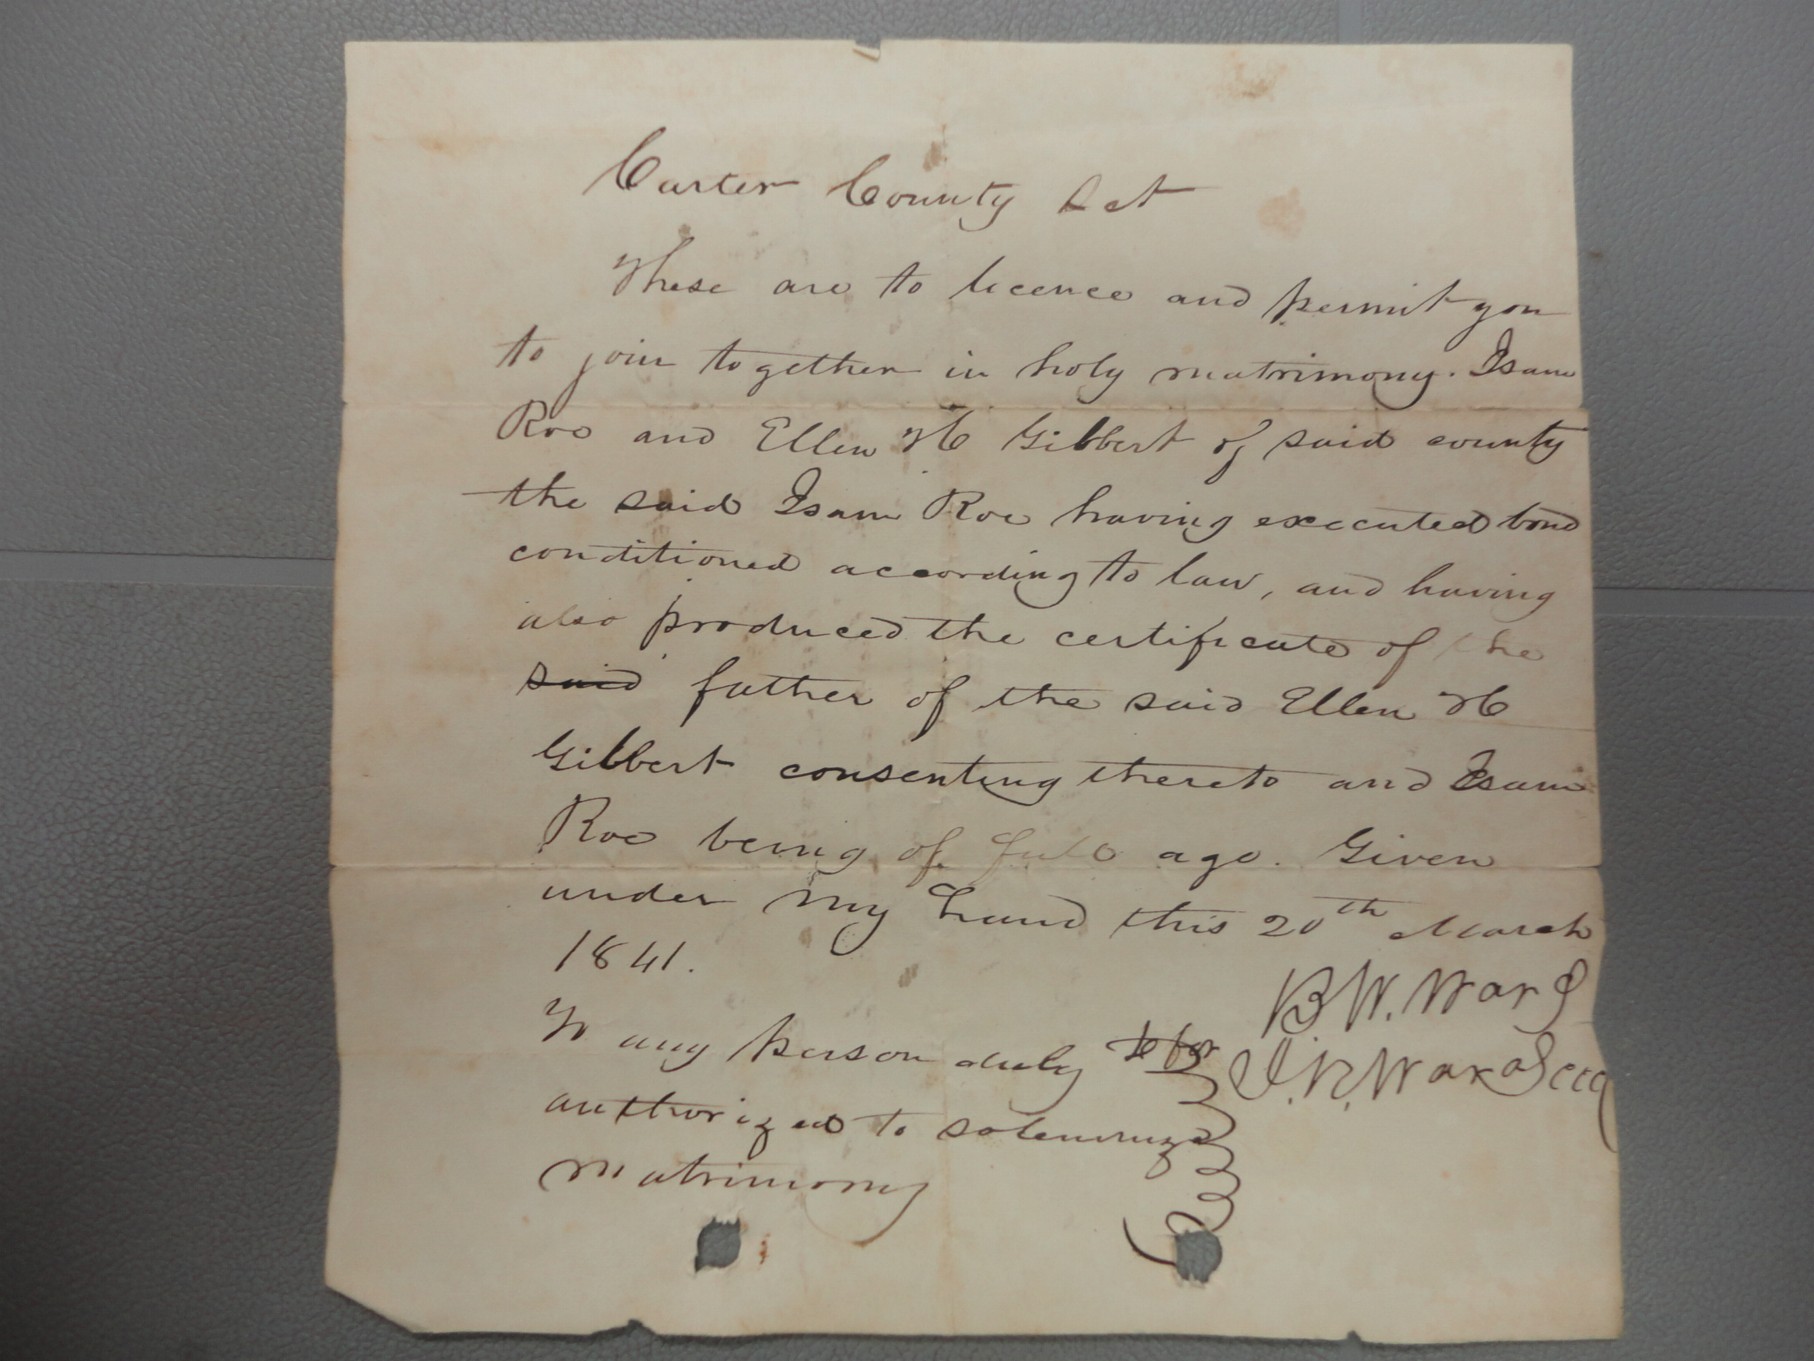 Carter County Sct
These are to licence and permit you
to join together in holy matrimony. Isam
Roe and Ellen H Gibbert of said county
the said Isam Roe having executed bond
conditioned according to law, and having
also produced the certificate of the
said father of the said Ellen H
Gibbert consenting thereto and Isam
Roe being of full age. Given
under my hand this 20th March
1841.
B W. Ward
To any person duly
J. R. Ward
authorized to solemnize
matrimony